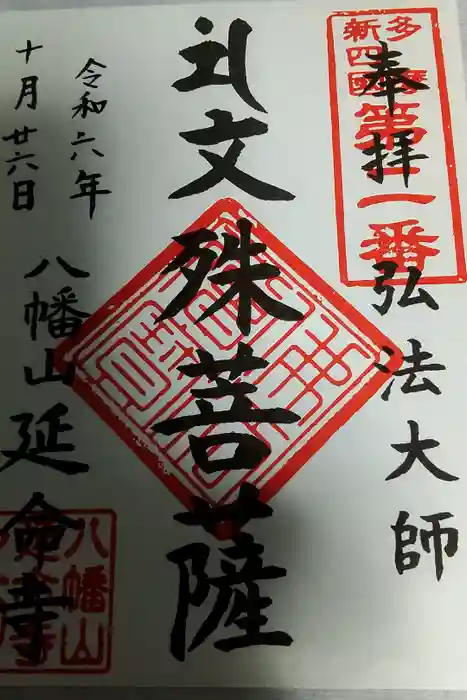 奉拝 弘法大師
多摩
新四國
第二番
礼文殊菩薩
令和六年
十月廿六日
八幡山延命寺
八幡山
延命寺